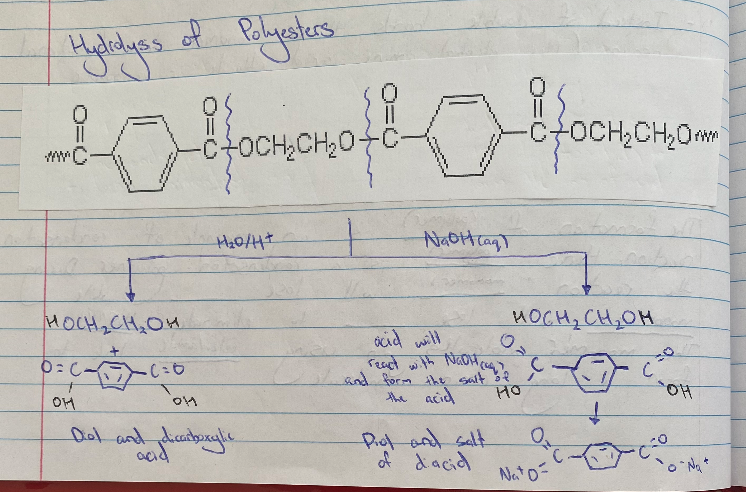 Hydrolysis of Polyesters
O O O O
C C-OCH₂CH₂O-C C-OCH₂CH₂O
H₂O/H⁺ NaOH(aq)
HOCH₂CH₂OH
+
O=C C=O
OH OH
Diol and dicarboxylic
acid
HOCH₂CH₂OH
acid will
react with NaOH(aq)
and form the salt of
the acid
O C C=O
HO OH
Diol and salt
of diacid
O C C=O
Na⁺O⁻ O⁻Na⁺